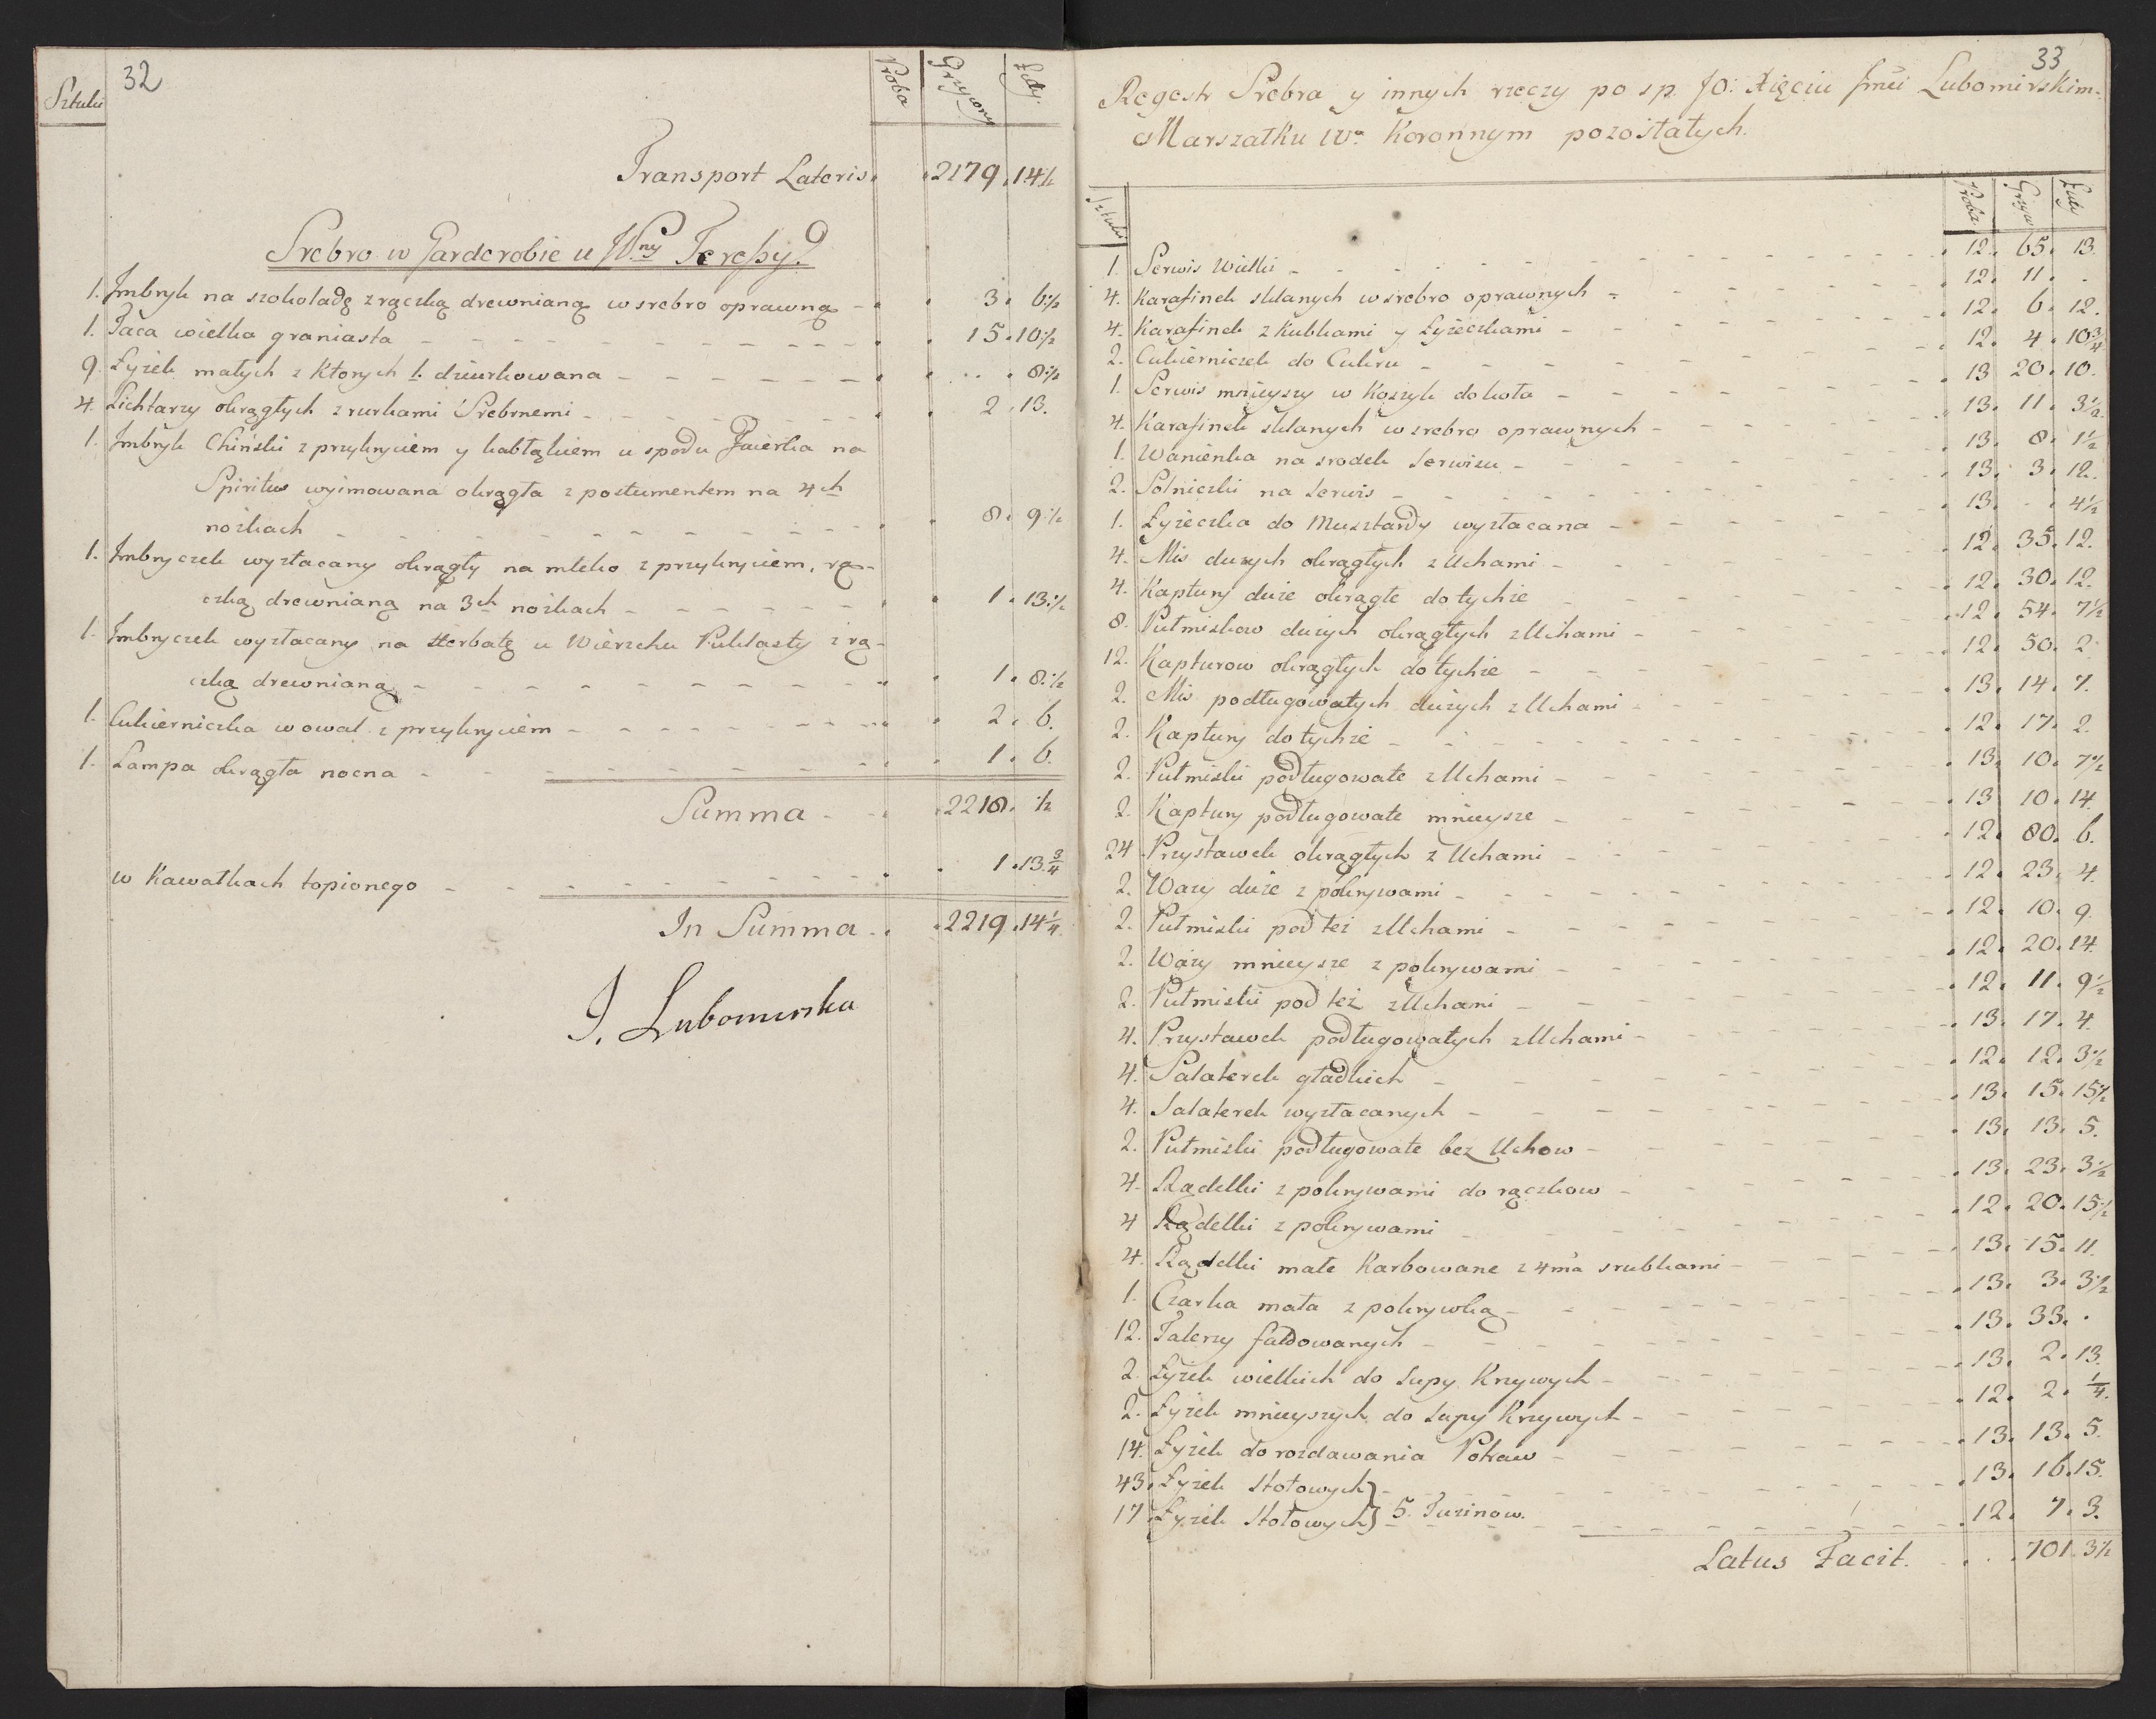 32
Sztuki Proba Grzywny Łuty.
Transport Lateris. 2179. 14½
Srebro w Garderobie u Wny Tereßy.
1. Imbryk na szokoladę z rączką drewnianą w srebro oprawną - 3. 6½
1. Taca wielka graniasta - 15. 10½
9. Łyżek małych z Ktorych 1. dziurkowana - . . 8½
4. Lichtarzy okrągłych z rurkami Srebrnemi - 2. 13.
1. Imbryk Chiński z przykryciem y kabłąkiem u spodu Faierka na
Spiritus wyimowana okrągła z postumentem na 4ch
nożkach - 8. 9½
1. Imbryczek wyzłacany okrągły na mleko z przykryciem, rą-
czką drewnianą na 3ch nożkach - 1. 13½
1. Imbryczek wyzłacany na Herbatę u Wierzchu Puklasty z rą-
czką drewnianą - 1. 8½
1. Cukierniczka w owal z przykryciem - 2. 6.
1. Lampa okrągła nocna - 1. 6.
Summa - 2218. ½
w Kawałkach topionego - 1. 13¾
In Summa - 2219. 14¼
I. Lubomirska
33
Regestr Srebra y innych rzeczy po sp. JO: Xięciu Jmci Lubomirskim
Marszałku W. Koronnym pozostałych.
Sztuki Proba Grzyw Łuty
1. Serwis Wielki - 12. 65. 13.
4. Karafinek sklanych w srebro oprawnych - 12. 11. -
4. Karafinek z Kubkami y Łyżeczkami - 12. 6. 12.
2. Cukierniczek do Cukru - 12. 4. 10¾
1. Serwis mnieyszy w Koszyk dokoła - 13 20. 10.
4. Karafinek sklanych w srebro oprawnych - 13. 11. 3½
1. Wanienka na srodek Serwisu - 13. 8. 1½
2. Solniczki na Serwis - 13. 3. 12.
1. Łyżeczka do Musztardy wyzłacana - 13. . 4½
4. Mis dużych okrągłych z Uchami - 12. 35. 12.
4. Kaptury duże okrągłe do tychże - 12. 30. 12.
8. Pułmiskow dużych okrągłych z Uchami - 12. 54. 7½
12. Kapturow okrągłych do tychże - 12. 50. 2.
2. Mis podługowatych dużych z Uchami - 13. 14. 7.
2. Kaptury do tychże - 12. 17. 2.
2. Pułmiski podługowate z Uchami - 13. 10. 7½
2. Kaptury podługowate mnieysze - 13 10. 14.
24 Przystawek okrągłych z Uchami - 12. 80. 6.
2. Wazy duże z pokrywami - 12. 23. 4.
2. Pułmiski pod też z Uchami - 12. 10. 9.
2. Wazy mnieysze z pokrywami - 12. 20. 14.
2. Pułmiski pod też z Uchami - 12. 11. 9½
4. Przystawek podługowatych z Uchami - 13. 17. 4.
4. Salaterek gładkich - 12. 12. 3½
4. Salaterek wyzłacanych - 13. 15. 15½
2. Pułmiski podługowate bez Uchow - 13. 13. 5.
4. Rądelki z pokrywami do rączkow - 13. 23. 3½
4 Rądelki z pokrywami - 12. 20. 15½
4. Rądelki małe Karbowane z 4ma srubkami - 13. 15. 11.
1. Czarka mała z pokrywką - 13. 3. 3½
12. Talerzy faldowanych - 13. 33. .
2. Łyżek wielkich do Supy Krzywych - 13. 2. 13.
2. Łyżek mnieyszych do Supy Krzywych - 12. 2. ¼.
14. Łyżek do rozdawania Potraw - 13. 13. 5.
43. Łyżek Stołowych - 13. 16. 15.
17. Łyżek Stołowych } 5. Tuzinow. - 12. 7. 3.
Latus Facit. . . 701. 3½